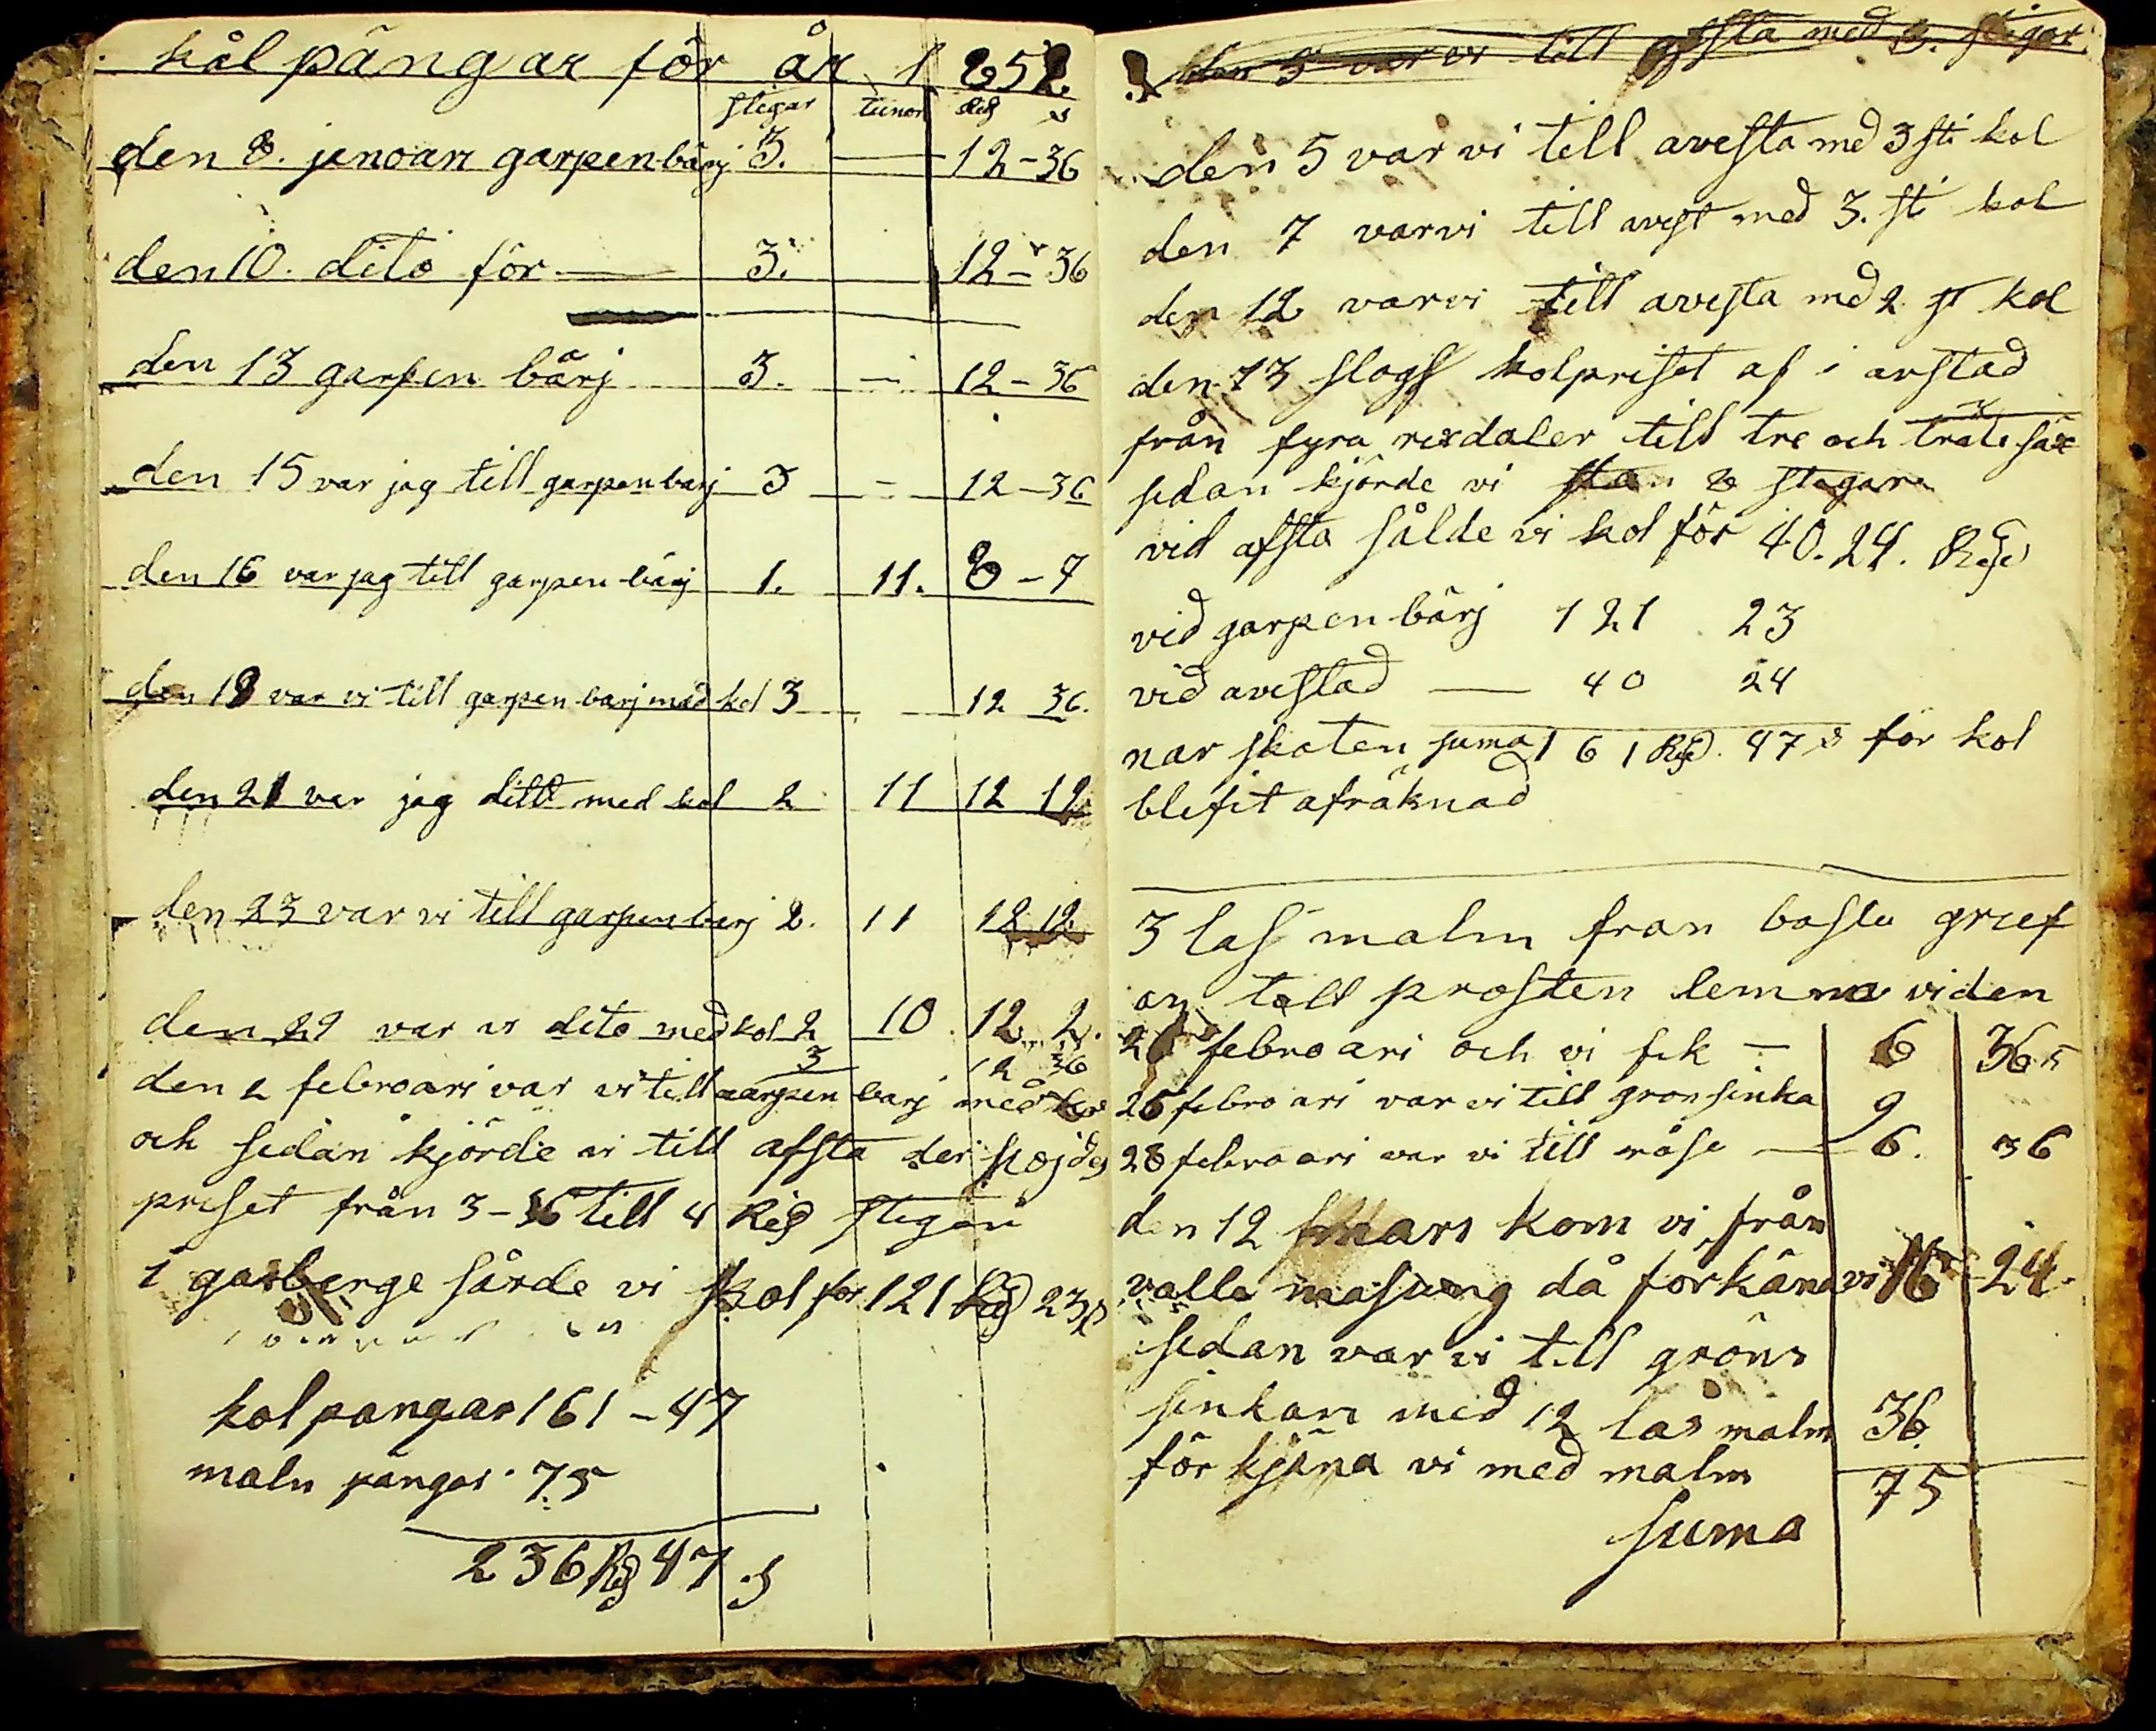 kål pängar för år 1852.
stegar tunor Rd s
den 8. janoari garpenbärj 3. — 12-36
den 10. dito för — 3. 12-36
den 13 garpen bärj 3. — 12-36
den 15 var jag till garpenbarj 3 — 12-36
den 16 var jag till garpen bärj 1. 11. 8-7
den 18 var vi till garpen barj mäd kol 3 12 36.
den 21 var jag ditt med kol 2 11 12 12
den 23 var vi till garpen barj 2. 11 12 12
den 29 var vi dito med kol 2 10 12 2.
3 12 36
den 2 febroari var vi till garpen barj med
och sedan kjörde vi till afsta der höjdes
priset från 3-36 till 4 Rd stegen
i garberge sårde vi kol för 121 Rd 23 s
kol pangar 161-47
maln pängar 75
236 Rd 47 s
den 5 var vi till afsta med 3. stigar
den 5 var vi till avesta med 3 sti kol
den 7 var vi till avest med 3. sti kol
den 12 var vi till avesta med 2 st kol
den 13 slogs kolpriset af i avstad
från fyra rixdaler till tre och träti säx
sedan kjörde vi 8 stegar
vid afsta sålde vi kol för 40.24. Rd
vid garpen bärj 121 23
vid avestad — 40 24
nar skaten suma 161 Rd. 47 s för kol
blifit afräknad
3 las malm fran basta grief
an till prosten lemna vi den
febroari och vi fek — 6 36 s
26 febroari var vi till gronsinka 9
28 febroari var vi till råse — 6. 36
den 12 mars kom vi från
valla masung då forkäna vi 16 24.
sedan var vi till gröns
sinkan med 12 las malm 36.
för kjäna vi med malm 75
suma